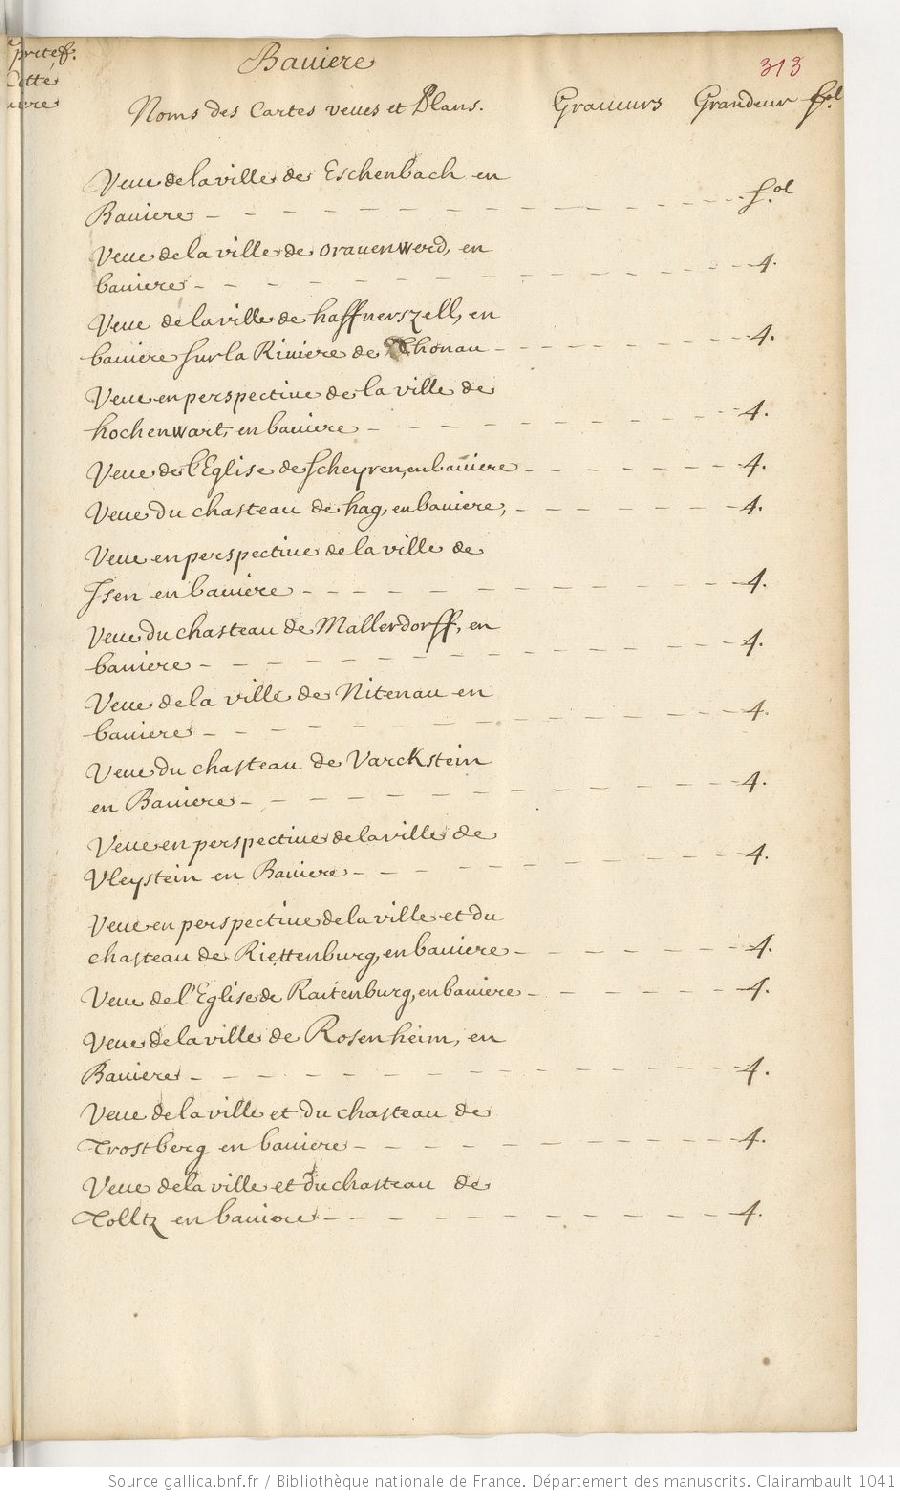 Baviere
313
Noms des Cartes veues et Plans. Graveurs Grandeur fol.
Veue de la ville de Eschenbach en
Baviere - - - - - - - - - - - - - fol
Veue de la ville de Grauenwerd, en
baviere - - - - - - - - - - - - - 4.
Veue de la ville de haffnerszell, en
baviere sur la Riviere de Thonau - - - - - - - 4.
Veue en perspective de la ville de
hochenwart, en baviere - - - - - - - - - 4.
Veue de l'Eglise de scheyren, en baviere - - - - - - 4.
Veue du chasteau de hag, en baviere, - - - - - - 4.
Veue en perspective de la ville de
Isen en baviere - - - - - - - - - - - 4.
Veue du chasteau de Mallerdorff, en
baviere - - - - - - - - - - - - - 4.
Veue de la ville de Nitenau en
baviere - - - - - - - - - - - - - 4.
Veue du chasteau de Varckstein
en Baviere - - - - - - - - - - - - 4.
Veue en perspective de la ville de
Vleystein en Baviere - - - - - - - - - 4.
Veue en perspective de la ville et du
chasteau de Riettenburg, en baviere - - - - - - 4.
Veue de l'Eglise de Raitenburg, en baviere - - - - - 4.
Veue de la ville de Rosenheim, en
Baviere - - - - - - - - - - - - - 4.
Veue de la ville et du chasteau de
Trostberg en baviere - - - - - - - - - 4.
Veue de la ville et du chasteau de
Tolltz en baviere - - - - - - - - - - 4.
Source gallica.bnf.fr / Bibliothèque nationale de France. Département des manuscrits. Clairambault 1041